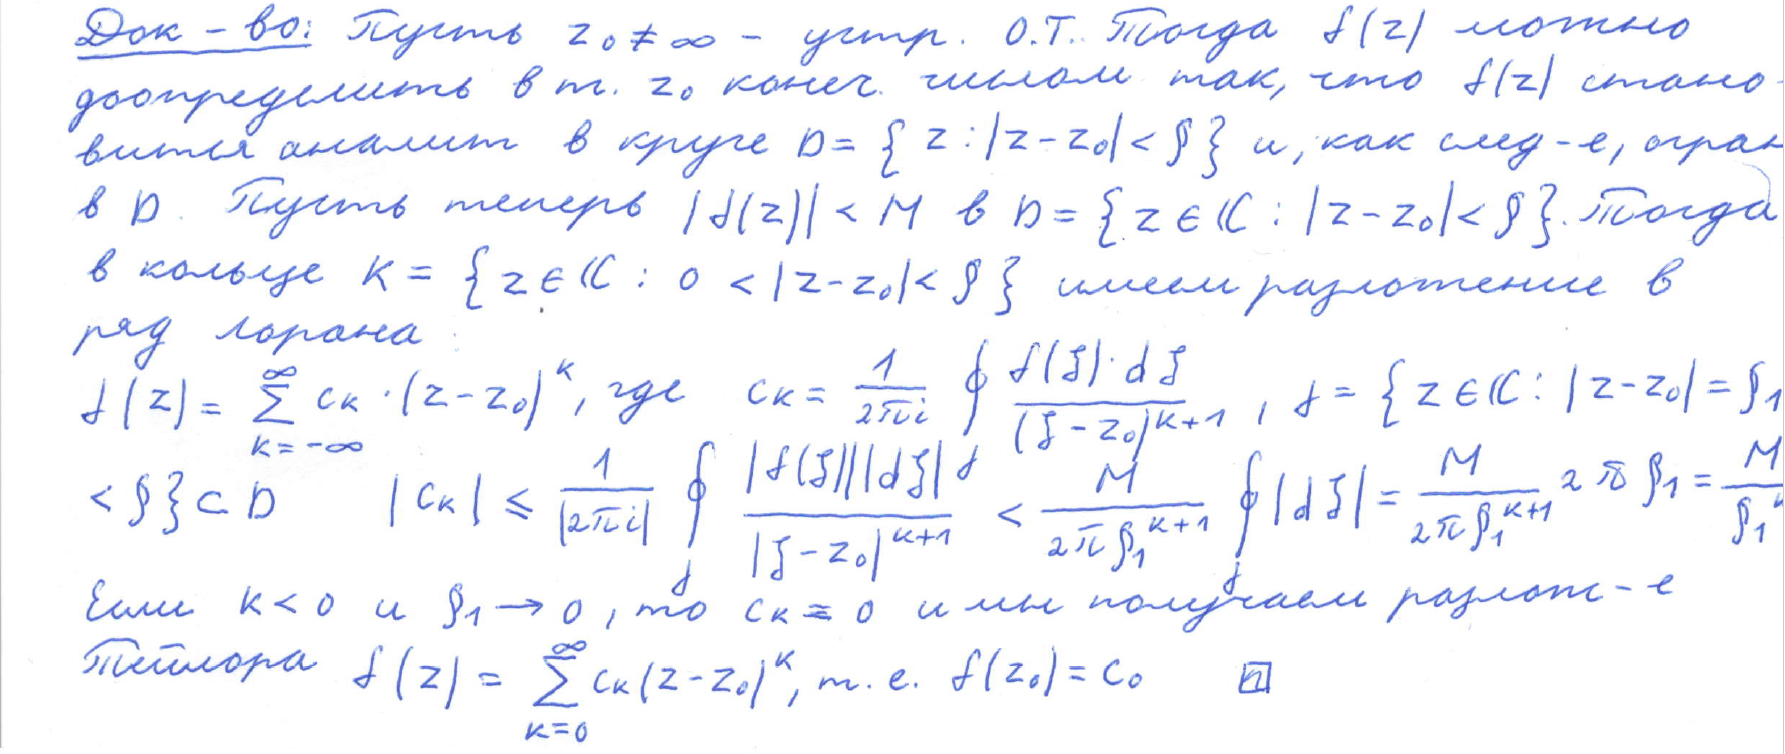 Док-во: Пусть z₀ ≠ ∞ – устр. О.Т. Тогда f(z) можно
доопределить в т. z₀ конеч. числом так, что f(z) стано-
вится аналит в круге D = { z : |z-z₀| < ρ } и, как след-е, огран
в D. Пусть теперь |f(z)| < M в D = { z ∈ ℂ : |z-z₀| < ρ }. Тогда
в кольце K = { z ∈ ℂ : 0 < |z-z₀| < ρ } имеем разложение в
ряд Лорана
f(z) = ∑_{k=-∞}^{∞} c_k · (z-z₀)^k, где c_k = 1/(2πi) ∮_γ f(ζ)·dζ/(ζ-z₀)^{k+1}, γ = { z ∈ ℂ : |z-z₀| = ρ₁
< ρ } ⊂ D |c_k| ≤ 1/|2πi| ∮_γ |f(ζ)||dζ|/|ζ-z₀|^{k+1} < M/(2πρ₁^{k+1}) ∮_γ |dζ| = M/(2πρ₁^{k+1}) 2πρ₁ = M/ρ₁^k
Если k < 0 и ρ₁ → 0, то c_k = 0 и мы получаем разлож-е
Тейлора f(z) = ∑_{k=0}^{∞} c_k(z-z₀)^k, т.е. f(z₀) = c₀